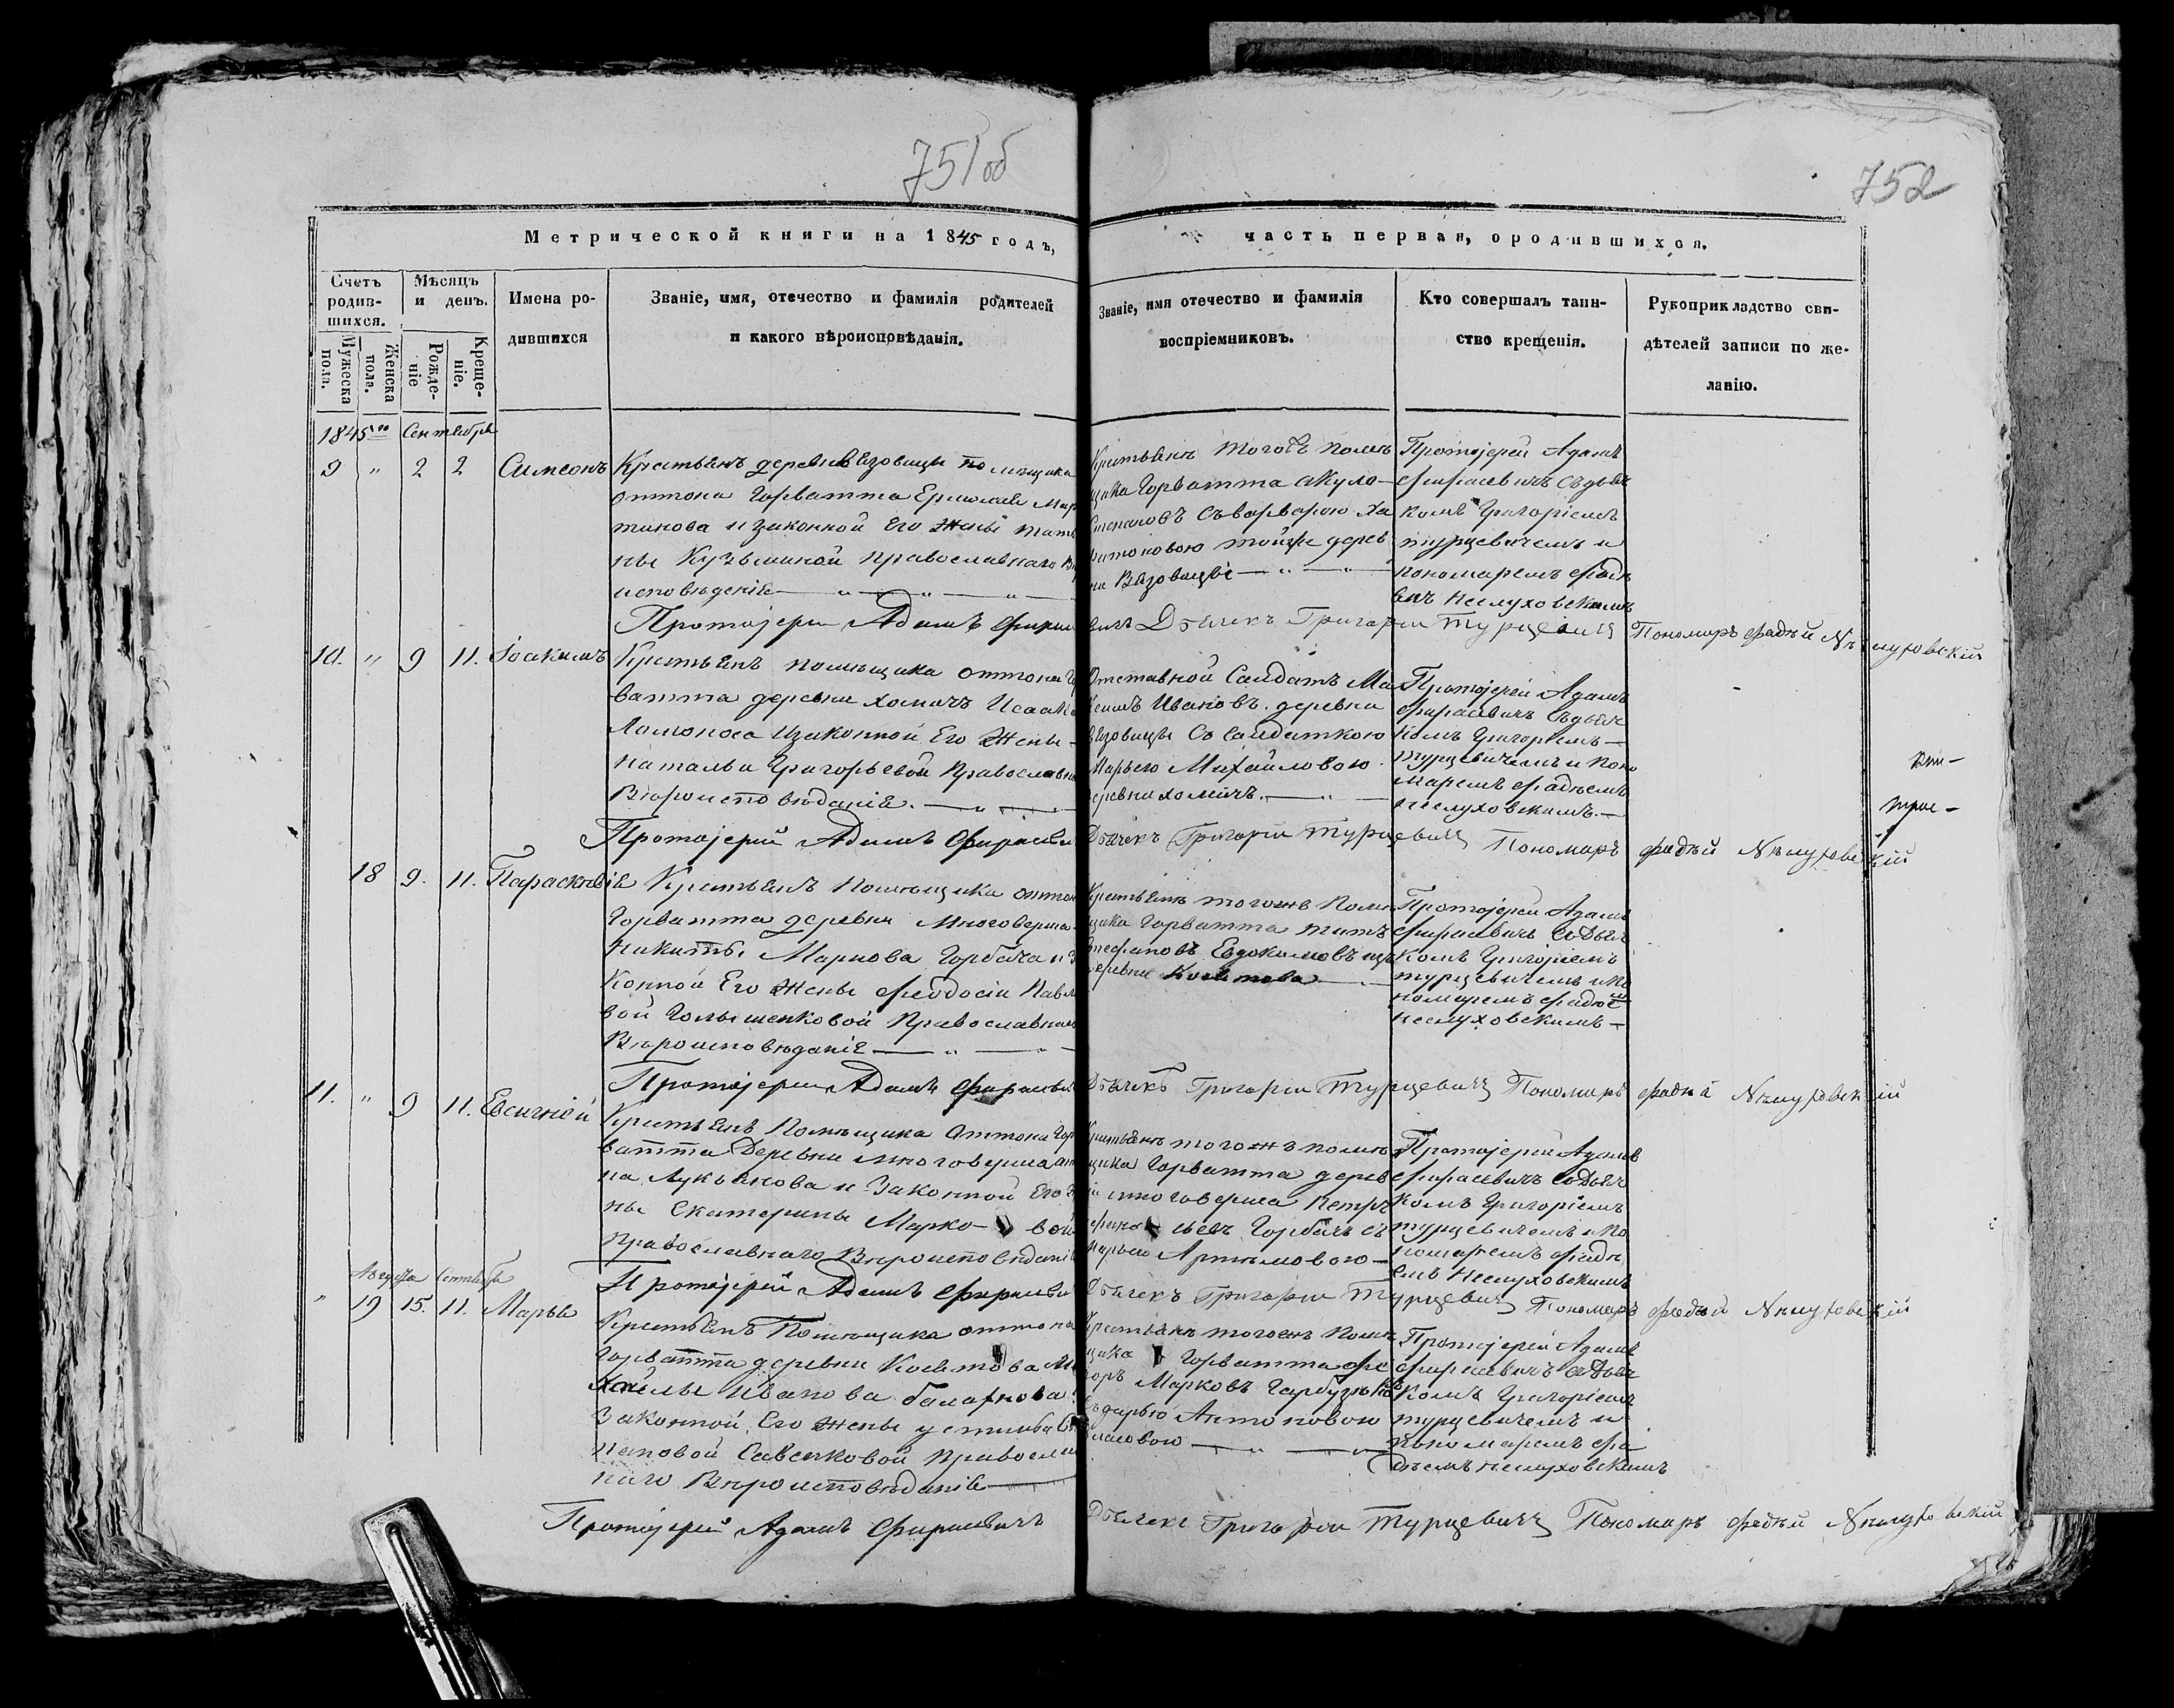 751 об
752
Метрической книги на 1845 годъ,
часть первая, ородившихся.
Счетъ родив-
шихся.
Мужеска пола.
Женска пола.
Мѣсяцъ и день.
Рожде-
ніе
Креще-
ніе.
Имена ро-
дившихся
Званіе, имя, отечество и фамилія родителей
и какого вѣроисповѣданія.
Званіе, имя отечество и фамилія
воспріемниковъ.
Кто совершалъ таин-
ство крещенія.
Рукоприкладство сви-
дѣтелей записи по же-
ланію.
1845го Сентебря
9 " 2 2 Симеонъ
Крестьенъ деревни Вязовицы помѣщика
оттона Горватта Ермолае Мар
тинова и законной Его Жены тать
ны Кузьминой православнаго
исповѣденіе
Крестьенъ тогоже помѣ
щика Горватта
Степановъ Съ варварою Ха
ритоновою тойже дерев
ни Вязовицы
Протоіерей Адамъ
Фирасевичъ Съ дьяч
комъ Григоріемъ
турцевичемъ и
пономаремъ
Неслуховскимъ
Протоіерей Адамъ Дьячекъ Григорій Турцевичъ Пономаръ Фадѣй
10. " 9 11. Іоакимъ
Крестьенъ помѣщика оттона Гор
ватта деревни хомичъ Исаака
Ломоноса изаконной Его Жены
Натальи Григорьевой Православна
Вѣроисповѣданіе.
Отставной Салдатъ Ма
ксимъ Ивановъ. деревни
Вязовицы Со Салдаткою
Марьею Михайловою
деревни хомичъ.
Протоіерей Адамъ
Фирасевичъ Съдьяч
комъ Григоріемъ
турцевичемъ и поно
маремъ Фадѣемъ
Неслуховскимъ.
Протоіерей Адамъ Фирасеви Дьячекъ Григорій Турцевичъ Пономаръ Фадѣй
18 9. 11. Параскевіе
Крестьенъ Помѣщика оттон
Горватта деревни Многоверша
Никиты Маркова Горбача и за
конной Его Жены Феодосіи Павло
вой Голышенковой Православнаго
Вѣроисповѣданіе
Крестьенъ тогожъ Помѣ
щика Горватта титъ
Стефановъ Евдокимовъ
деревни Косетова
Протоіерей Адамъ
Фирасевичъ СоДьяч
комъ Григоріемъ
турцевичемъ и По
номаремъ Фадѣе
Неслуховскимъ
Протоіерей Адамъ Фирасеви Дьячекъ Григорій Турцевичъ Пономаръ Фадѣй
11. " 9 11. Евсигній
Крестьенъ Помѣщика Оттона Гор
ватта Деревни Многоверша
на Лукьянова и Законной Его Же
ны Екатерины Марко вой
православнаго Вѣроисповѣданіе
Крестьенъ тогожъ помѣ
щика Горватта дерев
ни многоверша Петръ
Горбачъ съ
Марьею Артемовою
Протоіерей Адамъ
Фирасевичъ СоДьяч
комъ Григоріемъ
турцевичемъ и По
номаремъ Фадѣ
емъ Неслуховскимъ
Протоіерей Адамъ Фирасеви Дьячекъ Григорій Турцевичъ Пономаръ Фадѣй
Августа Сентебря
" 19 15. 11. Марье
Крестьенъ Помѣщика оттона
Горватта деревни Косетова Ми
хайлы Иванова
Законной Его Жены
Савенковой Православ
наго Вѣроисповѣданіе
Крестьенъ тогожъ Помѣ
щика Горватта
Марковъ
Съдарью Антоновою
Протоіерей Адамъ
Фирасевичъ СъДьяч
комъ Григоріемъ
турцевичемъ и
Пономаремъ Фа
дѣемъ Неслуховскимъ
Протоіерей Адамъ Фирасевичъ Дьячекъ Григорій Турцевичъ Пономаръ Фадѣй